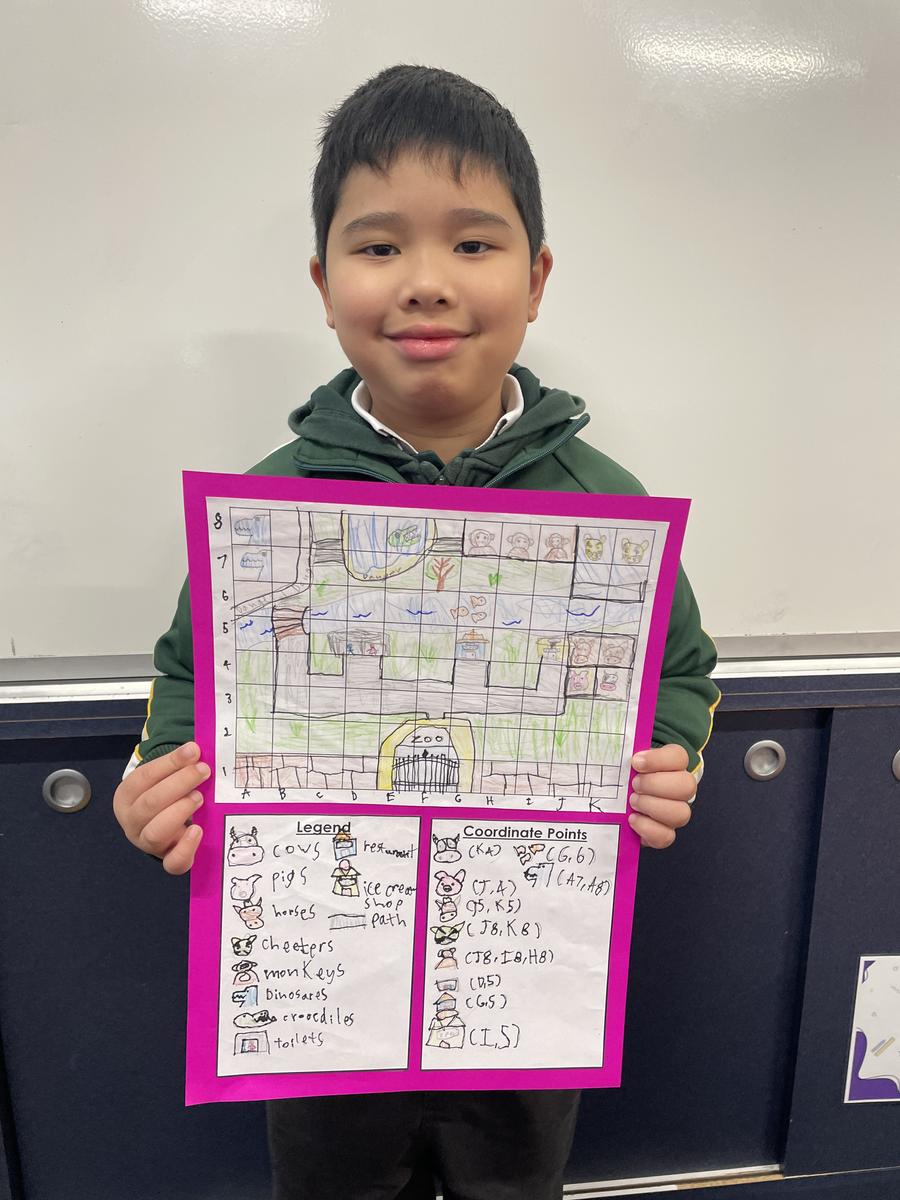 8
7
6
5
4
3
2
1
Danger
Danger
ZOO
A B C D E F G H I J K
Legend
cows
pigs
horses
cheeters
monkeys
Dinosares
croocdiles
toilets
ice cream
shop
path
Coordinate Points
(K4)
(G,6)
(A7, A8)
(J,4)
(J5, K5)
(J8, K8)
(J8, I8, H8)
(D,5)
(G,5)
(I,5)